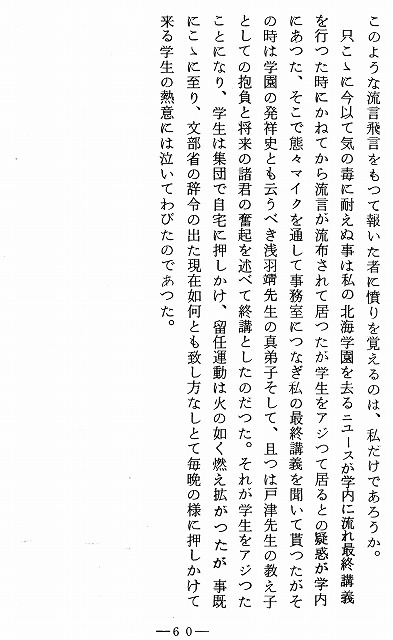 このような流言飛言をもつて報いた者に憤りを覚えるのは、私だけであろうか。
只こゝに今以て気の毒に耐えぬ事は私の北海学園を去るニユースが学内に流れ最終講義
を行つた時にかねてから流言が流布されて居つたが学生をアジつて居るとの疑惑が学内
にあつた、そこで態々マイクを通して事務室につなぎ私の最終講義を聞いて貰つたがそ
の時は学園の発祥史とも云うべき浅羽靖先生の真弟子そして、且つは戸津先生の教え子
としての抱負と将来の諸君の奮起を述べて終講としたのだつた。それが学生をアジつた
ことになり、学生は集団で自宅に押しかけ、留任運動は火の如く燃え拡がつたが 事既
にこゝに至り、文部省の辞令の出た現在如何とも致し方なしとて毎晩の様に押しかけて
来る学生の熱意には泣いてわびたのであつた。
―60―